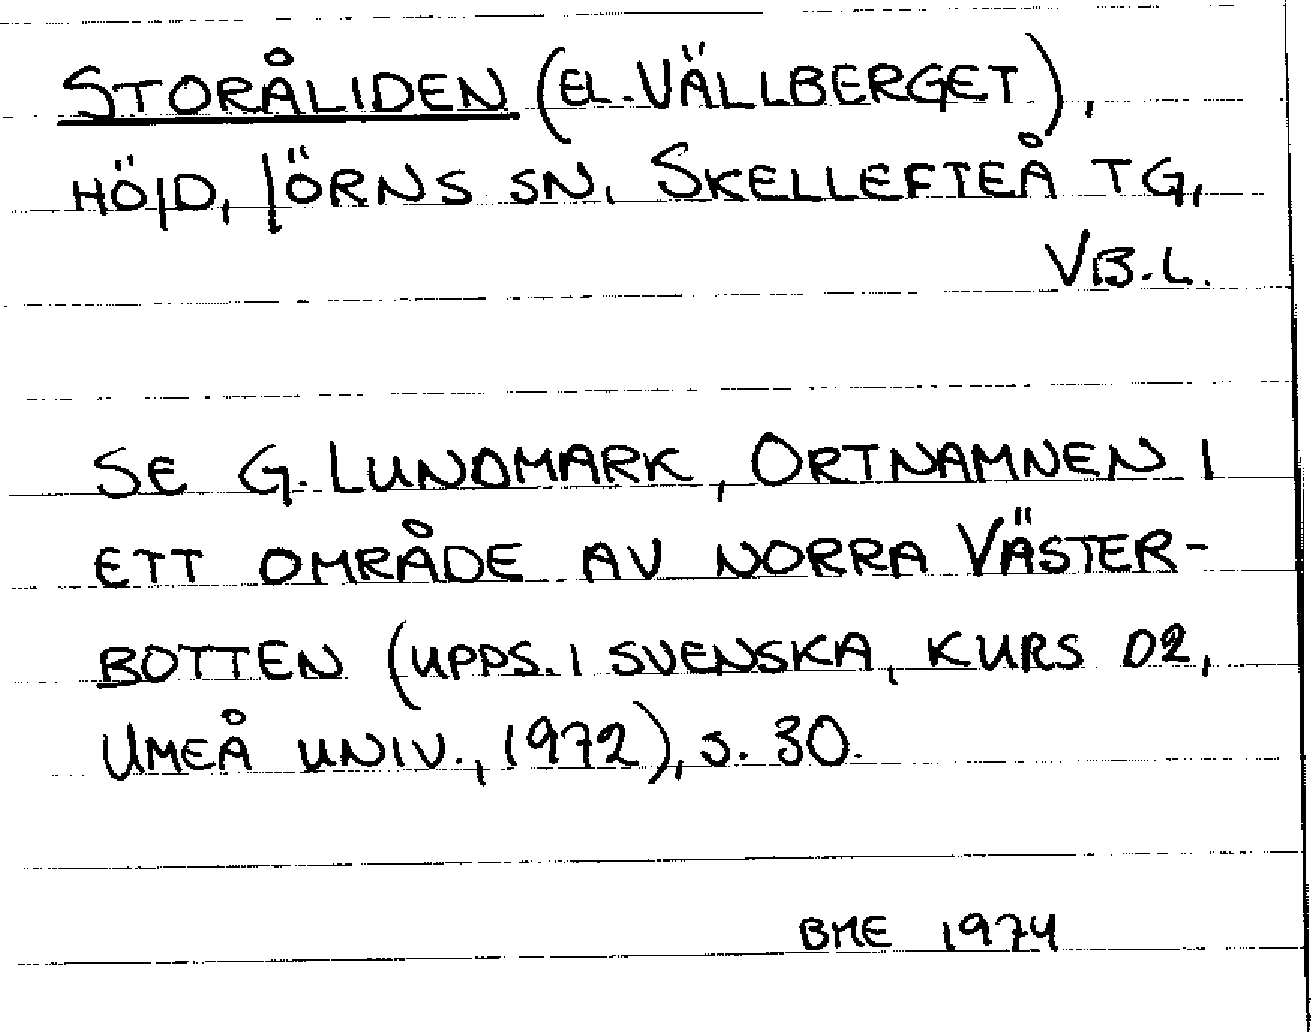 STORÅLIDEN (EL. VÄLLBERGET),
HÖJD, JÖRNS SN, SKELLEFTEÅ TG,
VB.L.
SE G. LUNDMARK, ORTNAMNEN I
ETT OMRÅDE AV NORRA VÄSTER-
BOTTEN (UPPS. I SVENSKA, KURS D2,
UMEÅ UNIV., 1972), S. 30.
BME 1974